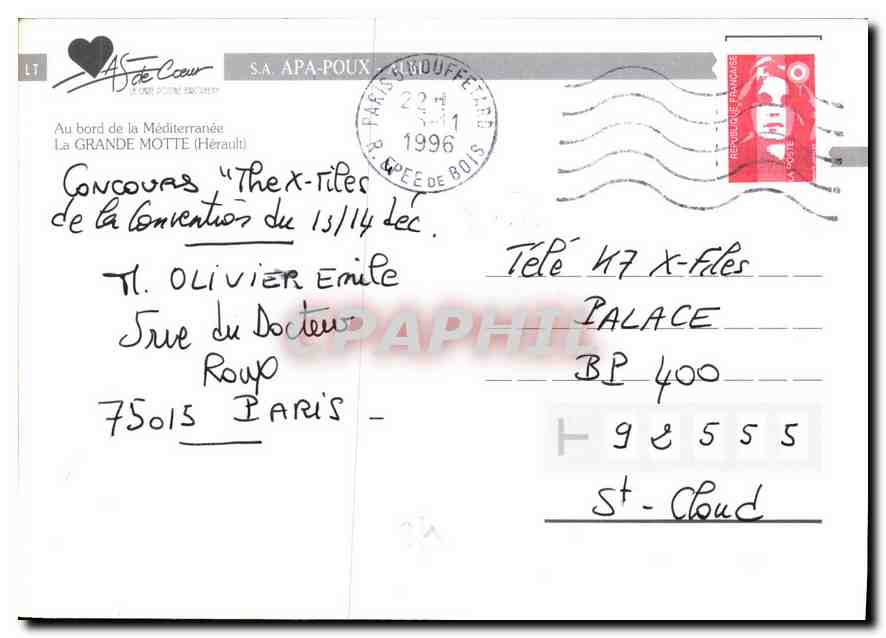 LT
AS de Cœur
S.A. APA-POUX - ALBI
Au bord de la Méditerranée
La GRANDE MOTTE (Hérault)
PARIS MOUFFETARD
22H
-11
1996
R. EPEE DE BOIS
RÉPUBLIQUE FRANÇAISE
LA POSTE
Concours "The X-Files
de la Convention du 13/14 déc.
M. OLIVIER Emile
5 rue du Docteur
Roux
75015 PARIS -
Télé K7 X-Files
PALACE
BP 400
92555
St - Cloud
CPAPHIL